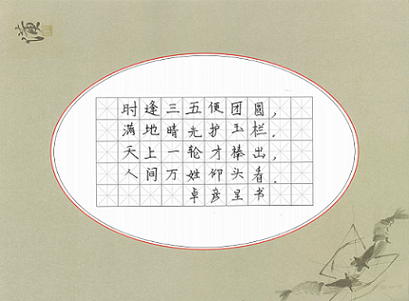 时逢三五便团圆，
满地晴光护玉栏．
天上一轮才捧出，
人间万姓仰头看．
卓彦里书